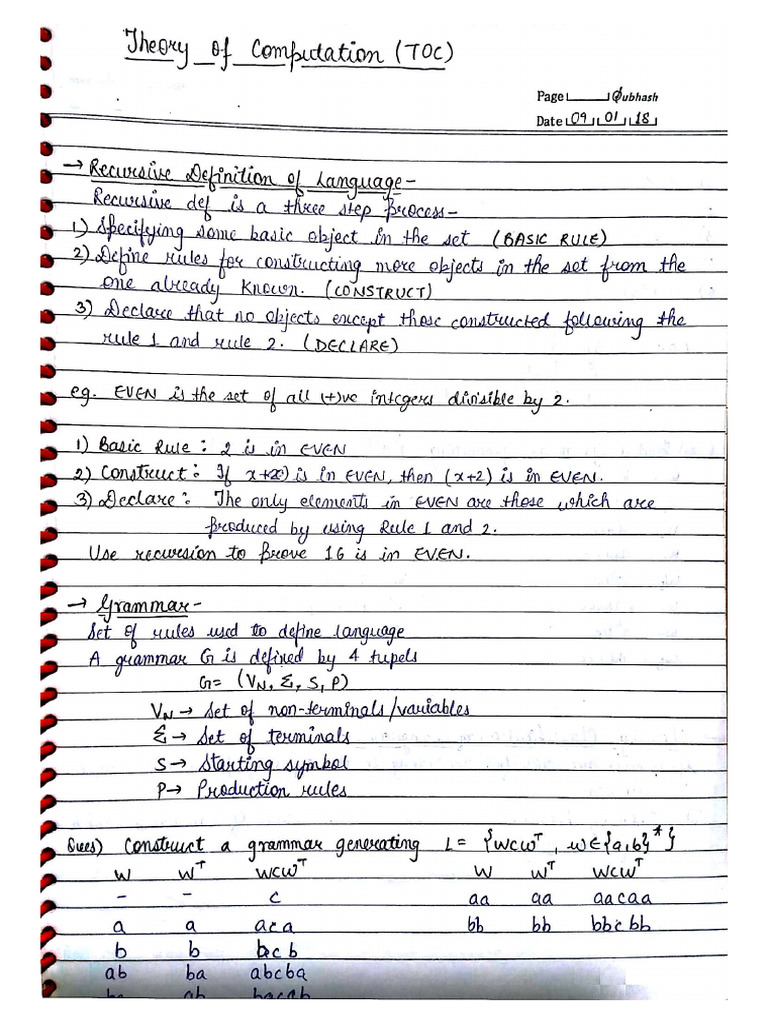 Theory of Computation (TOC)
Page Subhash
Date 09 01 18
→ Recursive Definition of Language-
Recursive def is a three step process-
1) Specifying some basic object in the set (BASIC RULE)
2) Define rules for constructing more objects in the set from the
one already known. (CONSTRUCT)
3) Declare that no objects except those constructed following the
rule 1 and rule 2. (DECLARE)
eg. EVEN is the set of all (+)ve integers divisible by 2.
1) Basic Rule: 2 is in EVEN
2) Construct: If x is in EVEN, then (x+2) is in EVEN.
3) Declare: The only elements in EVEN are those which are
produced by using Rule 1 and 2.
Use recursion to prove 16 is in EVEN.
→ Grammar-
Set of rules used to define language
A grammar G is defined by 4 tupels
G= (V_N, Σ, S, P)
V_N → Set of non-terminals/variables
Σ → Set of terminals
S → Starting symbol
P → Production rules
Ques) Construct a grammar generating L= {WcW^T, w∈{a,b}*}
W W^T WcW^T W W^T WcW^T
- - c aa aa aacaa
a a aca bb bb bbcbb
b b bcb
ab ba abcba
ba ab bacab